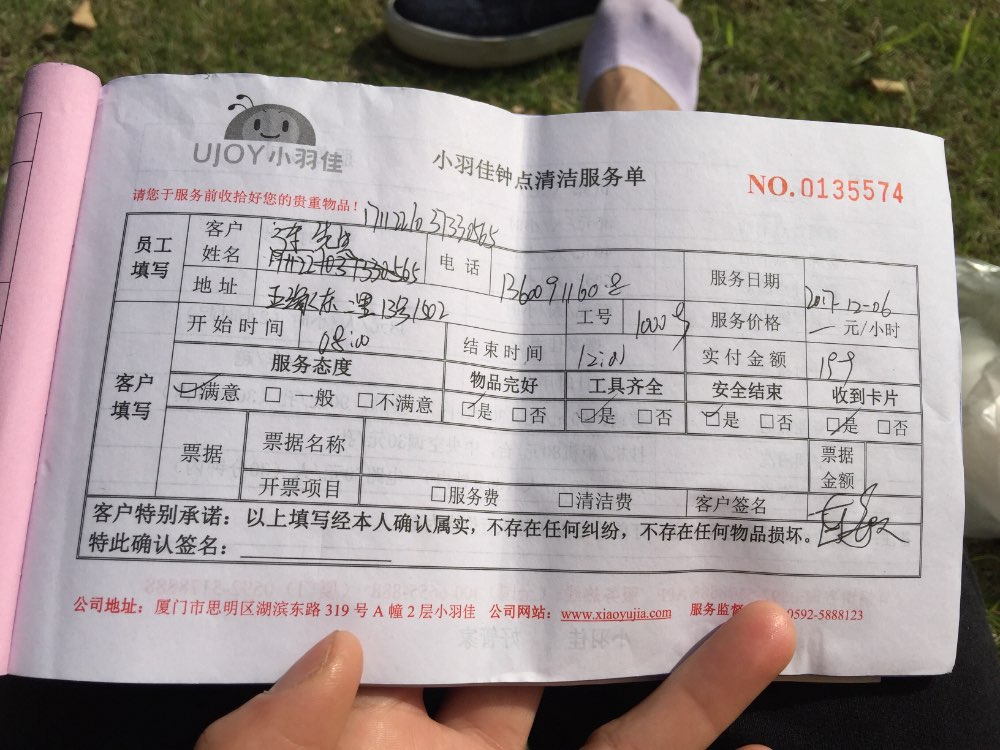 UJOY小羽佳
小羽佳钟点清洁服务单
NO.0135574
请您于服务前收拾好您的贵重物品！
员工填写 客户姓名 电话 服务日期 2017-12-06
地址 工号 1000号 服务价格 一元/小时
开始时间 08:00 结束时间 12:01 实付金额 199
客户填写 服务态度 物品完好 工具齐全 安全结束 收到卡片
☑满意 □一般 □不满意 ☑是 □否 ☑是 □否 ☑是 □否 ☑是 □否
票据 票据名称 票据金额
开票项目 □服务费 □清洁费 客户签名
客户特别承诺：以上填写经本人确认属实，不存在任何纠纷，不存在任何物品损坏。
特此确认签名：
公司地址：厦门市思明区湖滨东路 319 号 A 幢 2 层小羽佳 公司网站：www.xiaoyujia.com 服务监督 0592-5888123